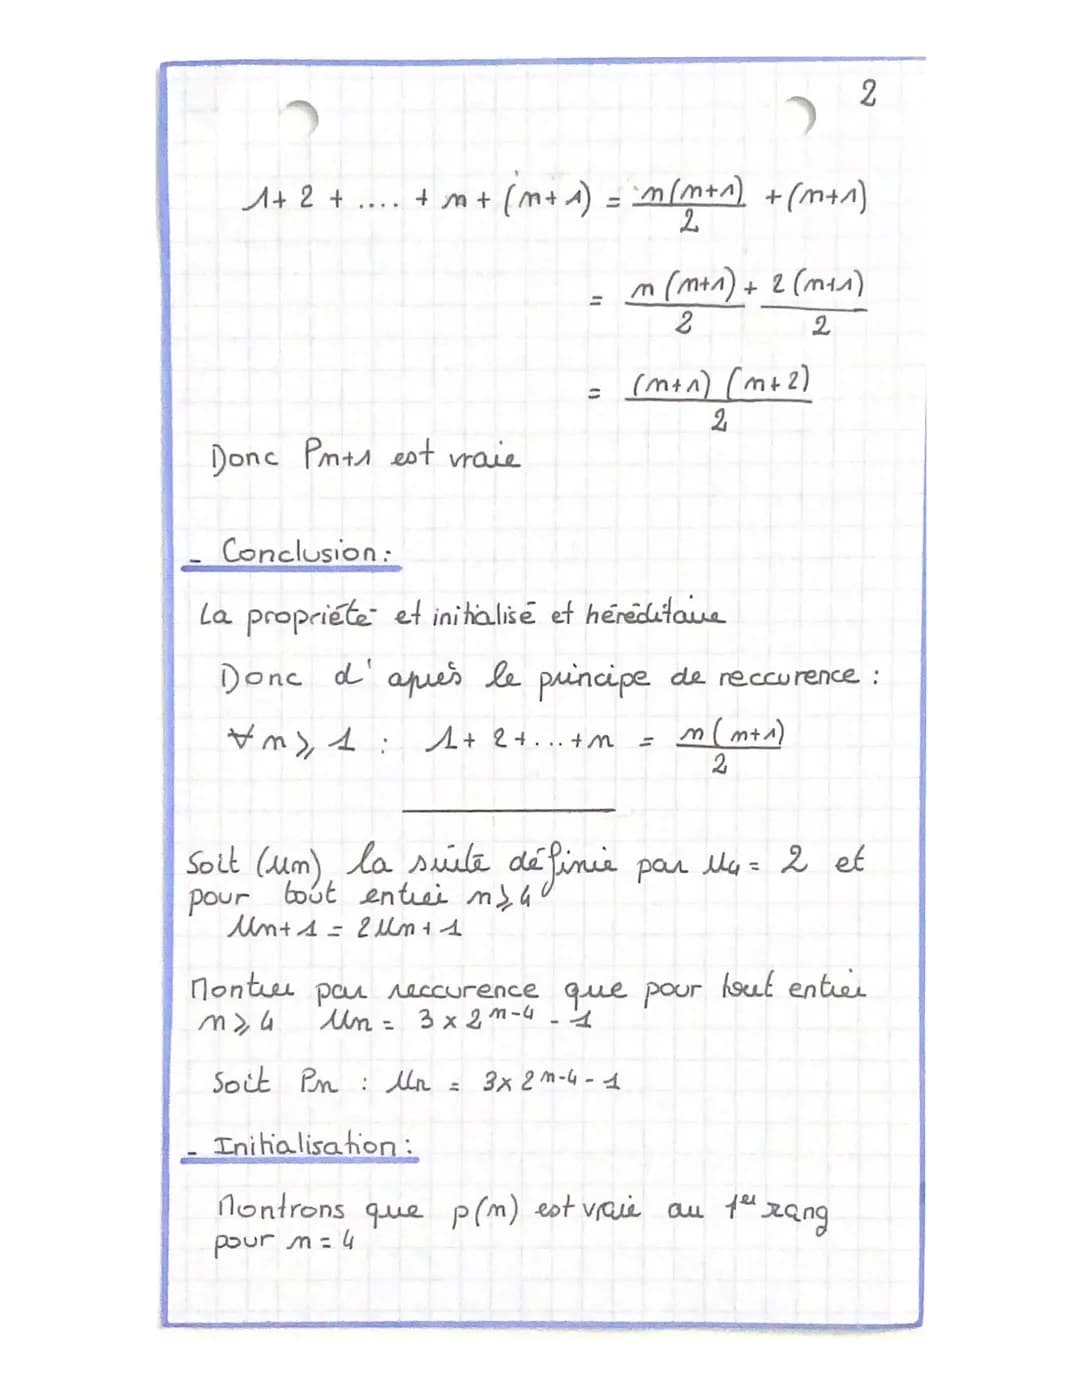 2
1 + 2 + .... + n + (n+1) = n(n+1)/2 + (n+1)
= n(n+1)/2 + 2(n+1)/2
= (n+1)(n+2)/2
Donc Pn+1 est vraie
- Conclusion :
La propriété et initialisé et héréditaire
Donc d'après le principe de reccurence :
∀n ⩾ 1 : 1 + 2 + ... + n = n(n+1)/2
Soit (un) la suite définie par u4 = 2 et
pour tout entier n ⩾ 4
Un+1 = 2Un + 1
Montrer par reccurence que pour tout entier
n ⩾ 4 Un = 3 x 2^n-4 - 1
Soit Pn : Un = 3x 2^n-4 - 1
- Initialisation :
Montrons que p(n) est vraie au 1er rang
pour n = 4